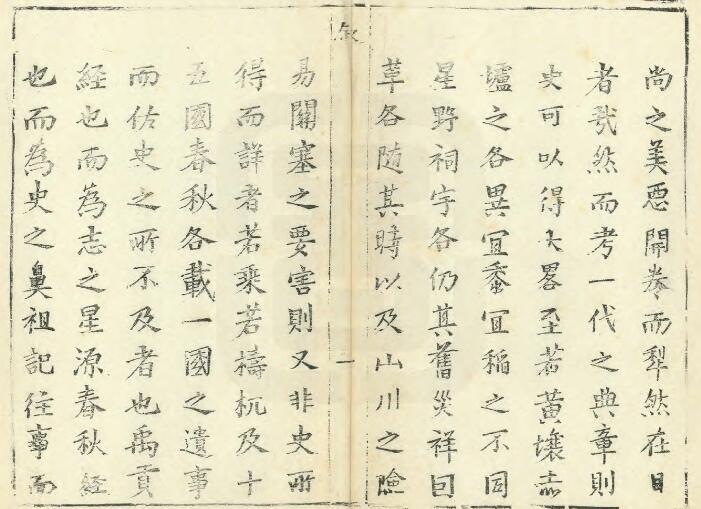 尚之美惡開卷而犁然在目
者哉然而考一代之典章則
史可以得大畧至若黃壤赤
壚之各異宜黍宜稻之不同
星野祠宇各仍其舊災祥囙
革各隨其時以及山川之險
叙
一
易關塞之要害則又非史所
得而詳者若乘若檮杌及十
五國春秋各載一國之遺事
而佐史之所不及者也禹貢
經也而為志之星源春秋經
也而為史之鼻祖記往事而